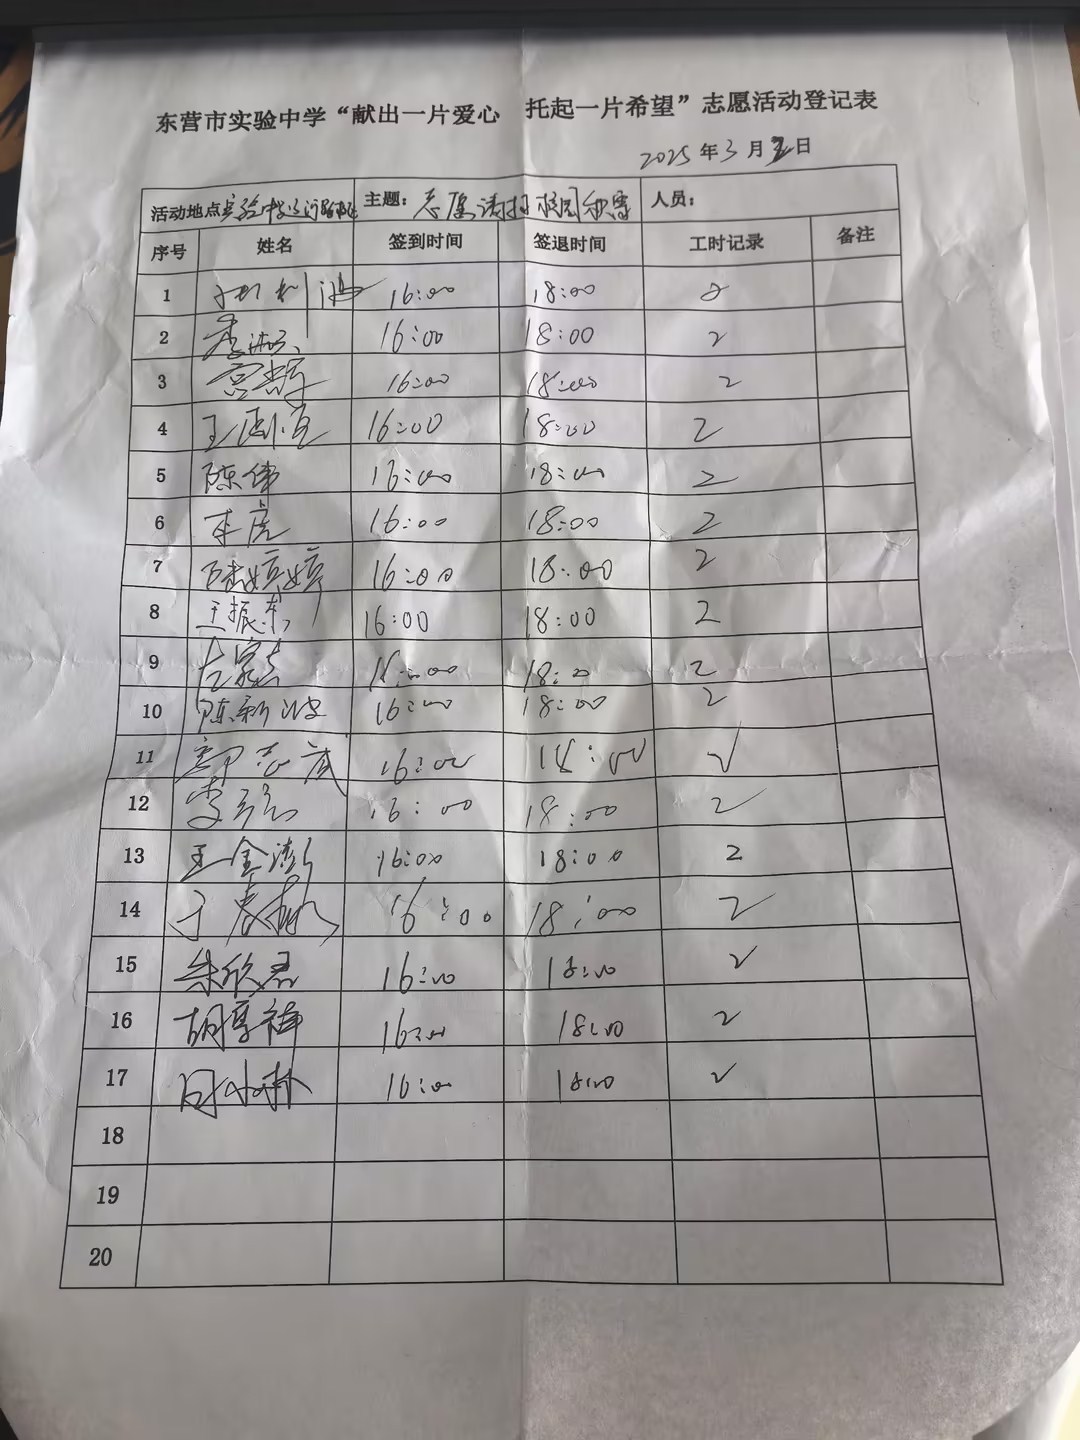 东营市实验中学“献出一片爱心 托起一片希望”志愿活动登记表
2025年3月 日
活动地点 实验中学 主题：志愿清扫校园 人员：
序号 姓名 签到时间 签退时间 工时记录 备注
1 16:00 18:00 2
2 16:00 18:00 2
3 16:00 18:00 2
4 王 16:00 18:00 2
5 陈伟 16:00 18:00 2
6 16:00 18:00 2
7 陆婷婷 16:00 18:00 2
8 王振东 16:00 18:00 2
9 16:00 18:00 2
10 陈新波 16:00 18:00 2
11 郭志武 16:00 18:00 2
12 李 16:00 18:00 2
13 王金澎 16:00 18:00 2
14 于春 16:00 18:00 2
15 朱欣君 16:00 18:00 2
16 胡享祎 16:00 18:00 2
17 16:00 18:00 2
18
19
20